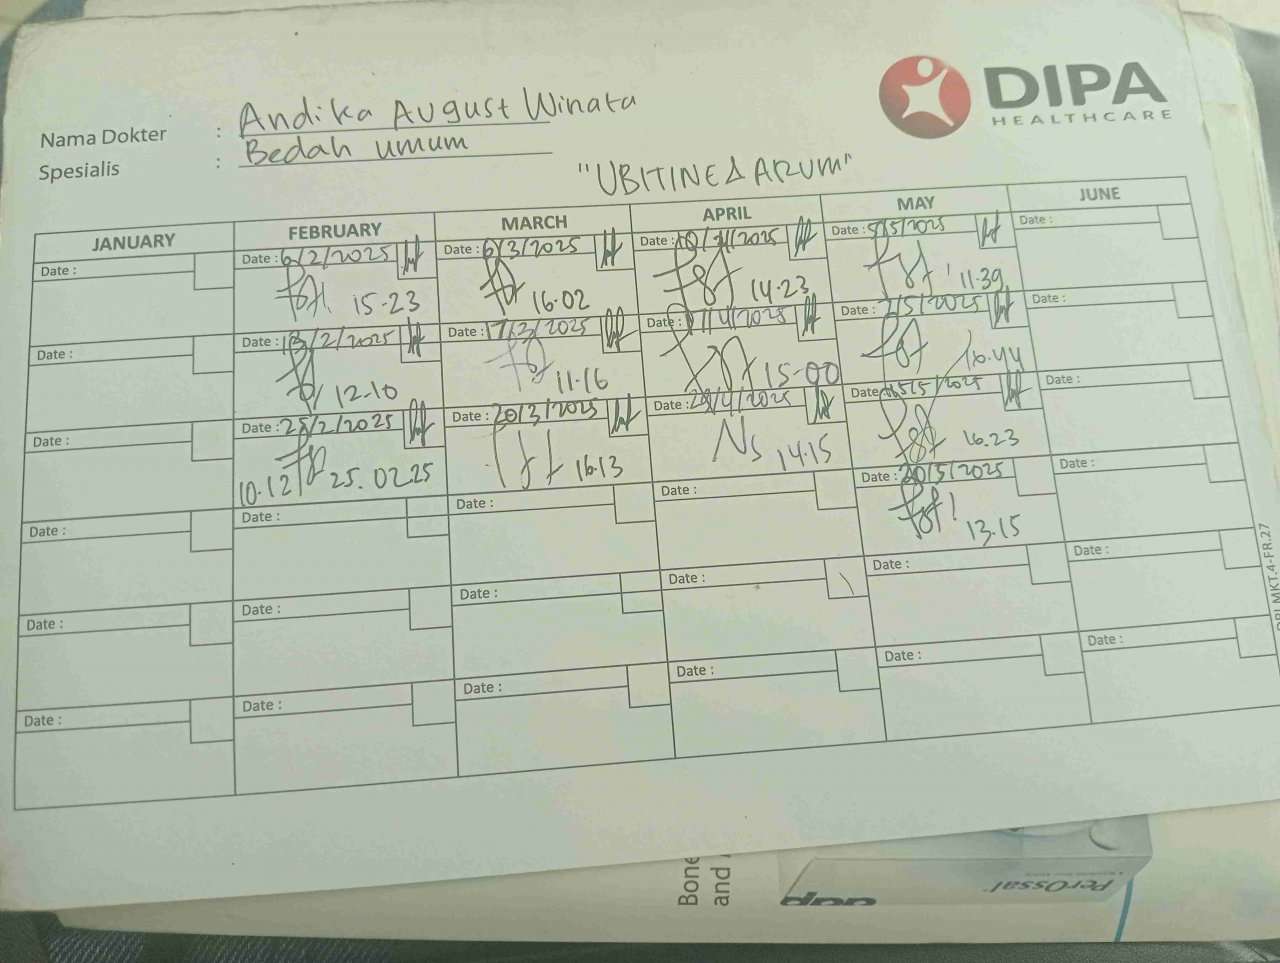 DIPA
HEALTHCARE
Nama Dokter : Andika August Winata
Spesialis : Bedah umum
"UBITINE & ARUM"
JANUARY FEBRUARY MARCH APRIL MAY JUNE
Date : Date : 6/2/2025 Date : 6/3/2025 Date : Date : 5/5/2025 Date :
15-23 16.02 14.23 11.39
Date : Date : 13/2/2025 Date : 17/3/2025 Date : 17/4/2025 Date : 7/5/2025 Date :
12-10 11-16 15-00 16.44
Date : Date : 25/2/2025 Date : 20/3/2025 Date : 29/4/2025 Date : 15/5/2025 Date :
10.12 25.02.25 16.13 14.15 16.23
Date : Date : Date : Date : Date : 20/5/2025 Date :
13.15
Date : Date : Date : Date : Date : Date :
Date : Date : Date : Date : Date : Date :
MKT.4-FR.27
Bone
and
PerOssal
aap